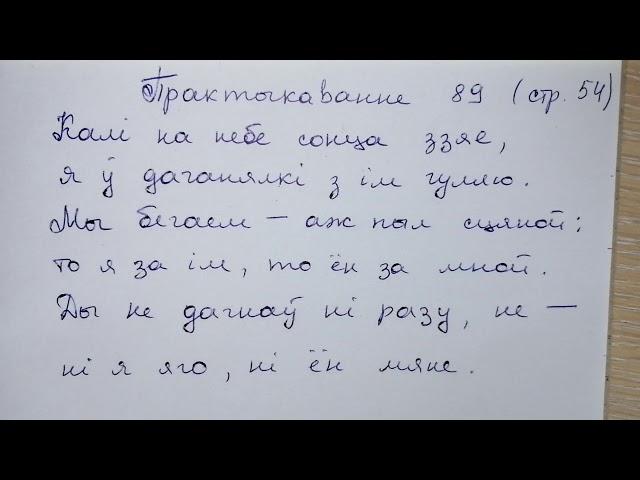 Практыкаванне 89 (стр. 54)
Калі на небе сонца ззяе,
я ў даганялкі з ім гуляю.
Мы бегаем — аж пыл сцяной:
то я за ім, то ён за мной.
Ды не дагнаў ні разу, не —
ні я яго, ні ён мяне.